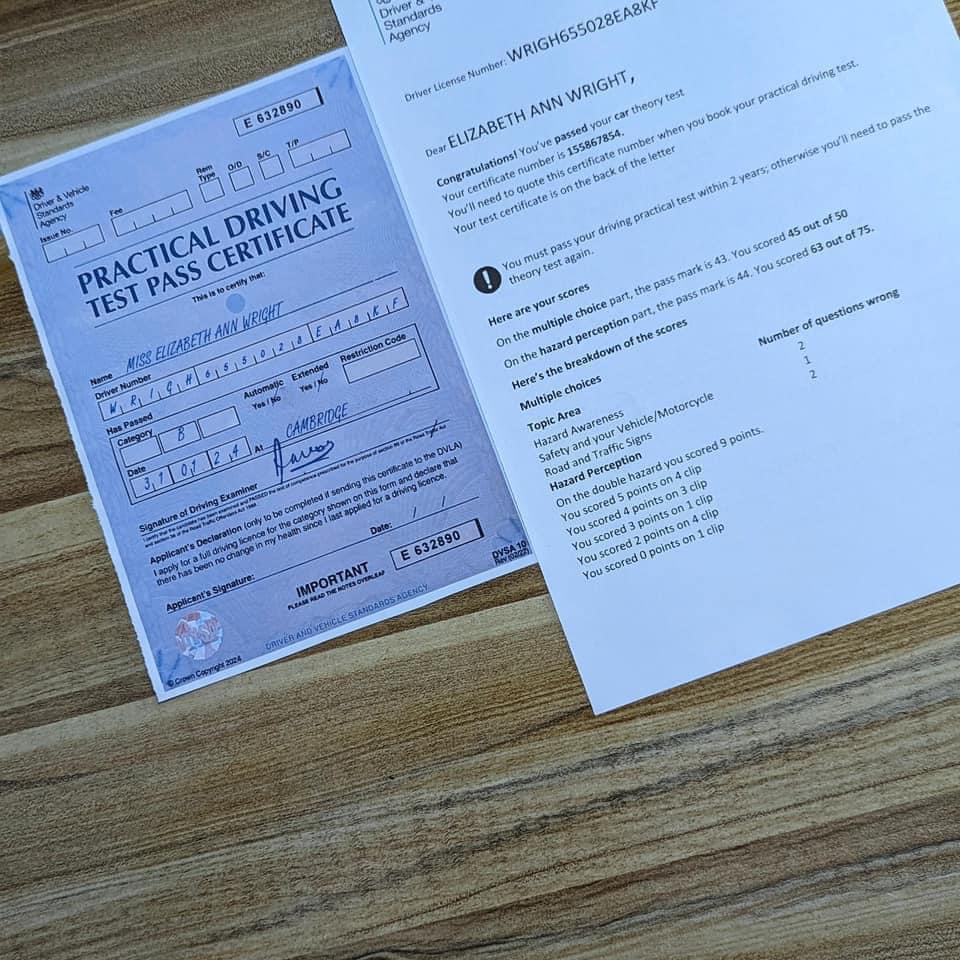 E 632890
Driver & Vehicle
Standards
Agency
Issue No.
Fee
Rem
Type
O/D
S/C
T/P
PRACTICAL DRIVING
TEST PASS CERTIFICATE
This is to certify that:
Name MISS ELIZABETH ANN WRIGHT
Driver Number
WRIGH655028EA8KF
Has Passed
Category B
Automatic
Yes / No
Extended
Yes / No
Restriction Code
Date 31 01 24 At CAMBRIDGE
Signature of Driving Examiner
I certify that the candidate has been examined and PASSED the test of competence prescribed for the purpose of section 89 of the Road Traffic Act
and section 36 of the Road Traffic Offenders Act 1988.
Applicant's Declaration (only to be completed if sending this certificate to the DVLA)
I apply for a full driving licence for the category shown on this form and declare that
there has been no change in my health since I last applied for a driving licence.
Applicant's Signature:
Date: / /
E 632890
IMPORTANT
PLEASE READ THE NOTES OVERLEAF
DVSA 10
DRIVER AND VEHICLE STANDARDS AGENCY
© Crown Copyright 2024
Driver &
Standards
Agency
Driver License Number: WRIGH655028EA8KF
Dear ELIZABETH ANN WRIGHT,
Congratulations! You've passed your car theory test
Your certificate number is 155867854.
You'll need to quote this certificate number when you book your practical driving test.
Your test certificate is on the back of the letter
You must pass your driving practical test within 2 years; otherwise you'll need to pass the
theory test again.
Here are your scores
On the multiple choice part, the pass mark is 43. You scored 45 out of 50
On the hazard perception part, the pass mark is 44. You scored 63 out of 75.
Here's the breakdown of the scores
Multiple choices
Number of questions wrong
Topic Area
Hazard Awareness 2
Safety and your Vehicle/Motorcycle 1
Road and Traffic Signs 2
Hazard Perception
On the double hazard you scored 9 points.
You scored 5 points on 4 clip
You scored 4 points on 3 clip
You scored 3 points on 1 clip
You scored 2 points on 4 clip
You scored 0 points on 1 clip